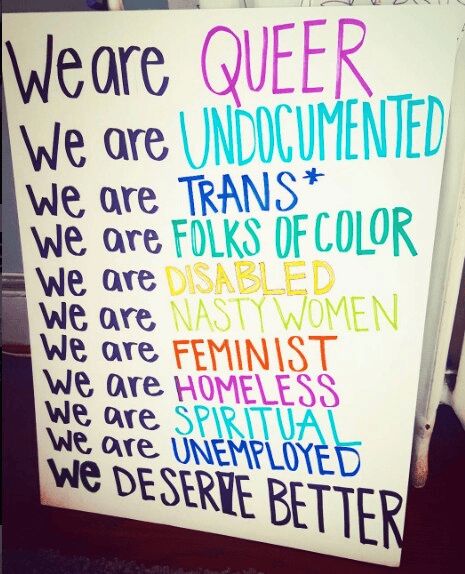 We are QUEER
We are UNDOCUMENTED
We are TRANS*
We are FOLKS OF COLOR
We are DISABLED
We are NASTY WOMEN
We are FEMINIST
We are HOMELESS
We are SPIRITUAL
We are UNEMPLOYED
We DESERVE BETTER